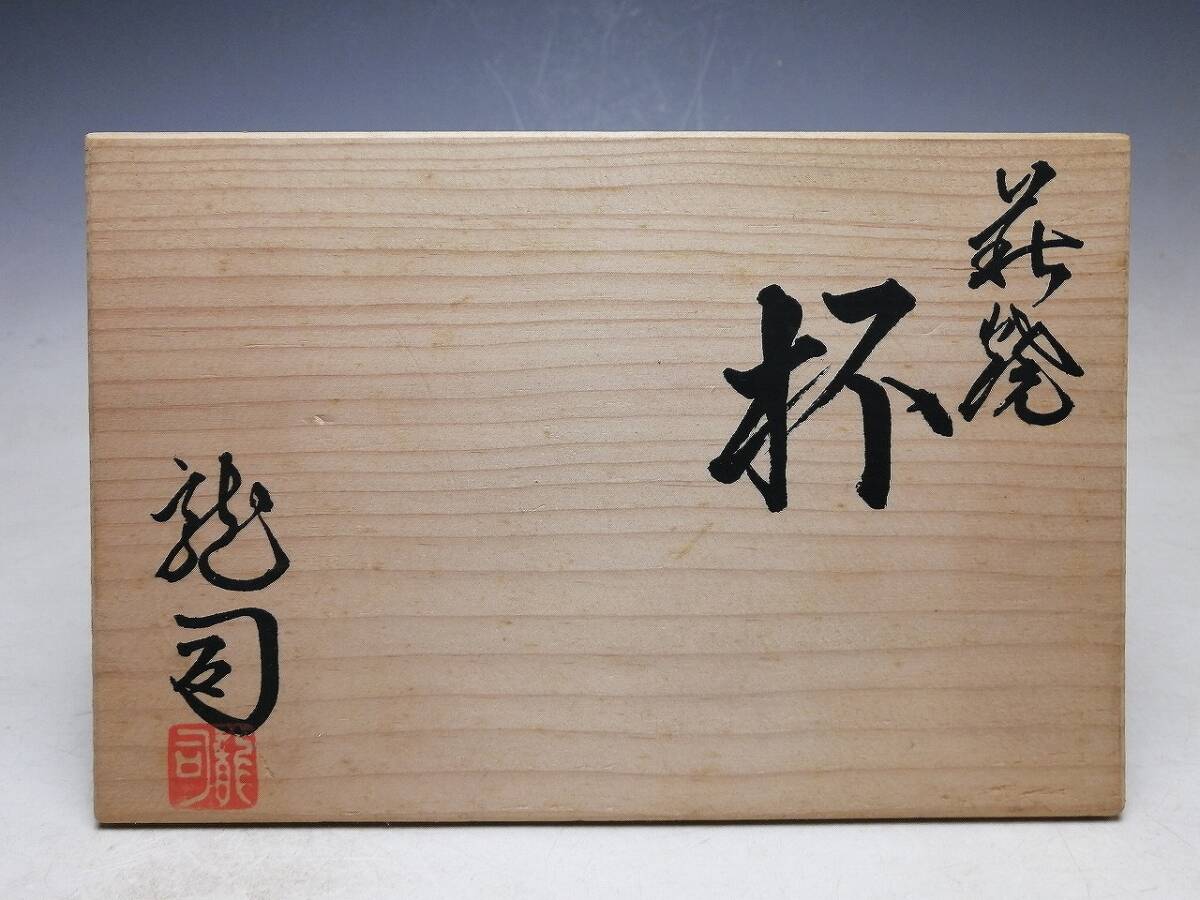 萩焼
杯
龍司
龍司